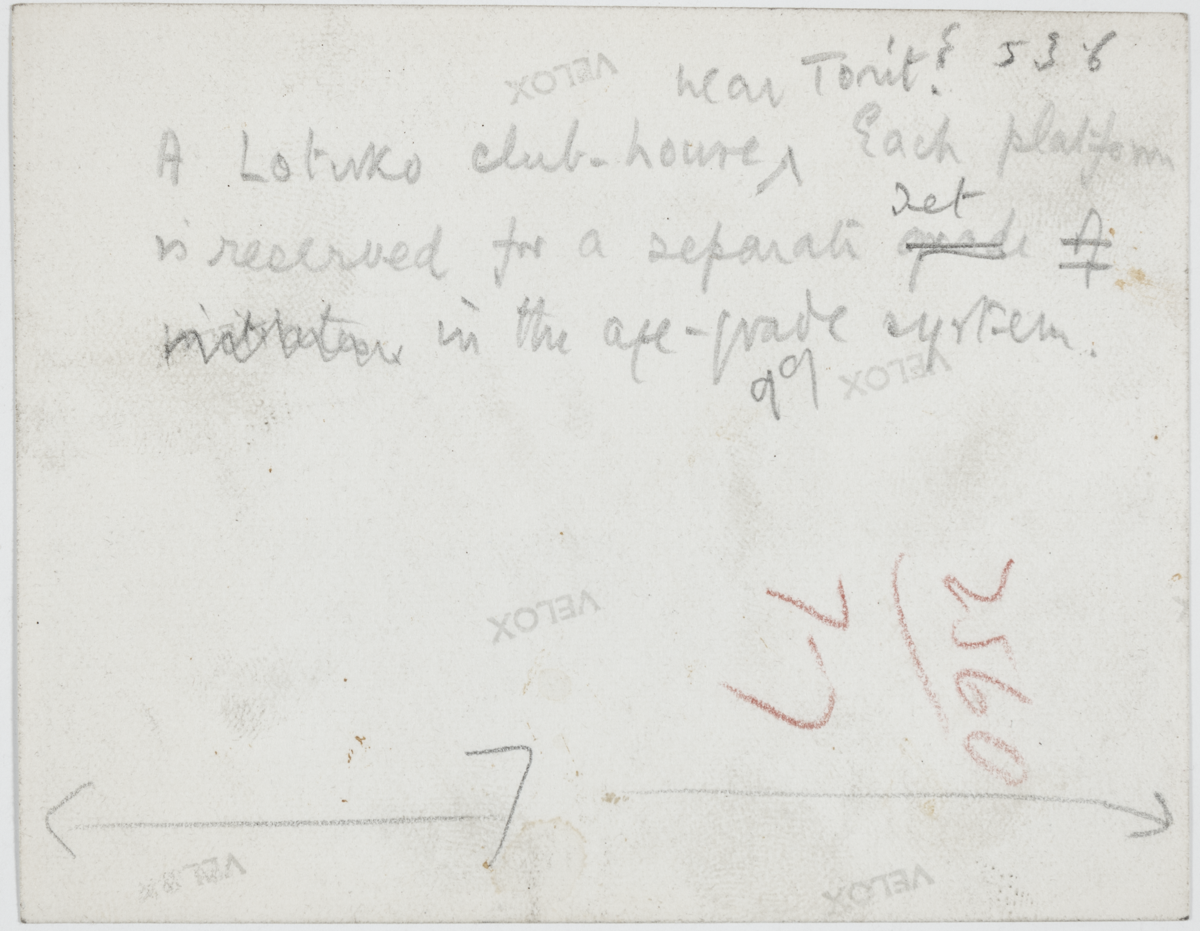 near Torit. 536
A Lotuko club-house, ^ Each platform
set
is reserved for a separate grade A
in the age-grade system.
VELOX
VELOX
VELOX
VELOX
VELOX
7